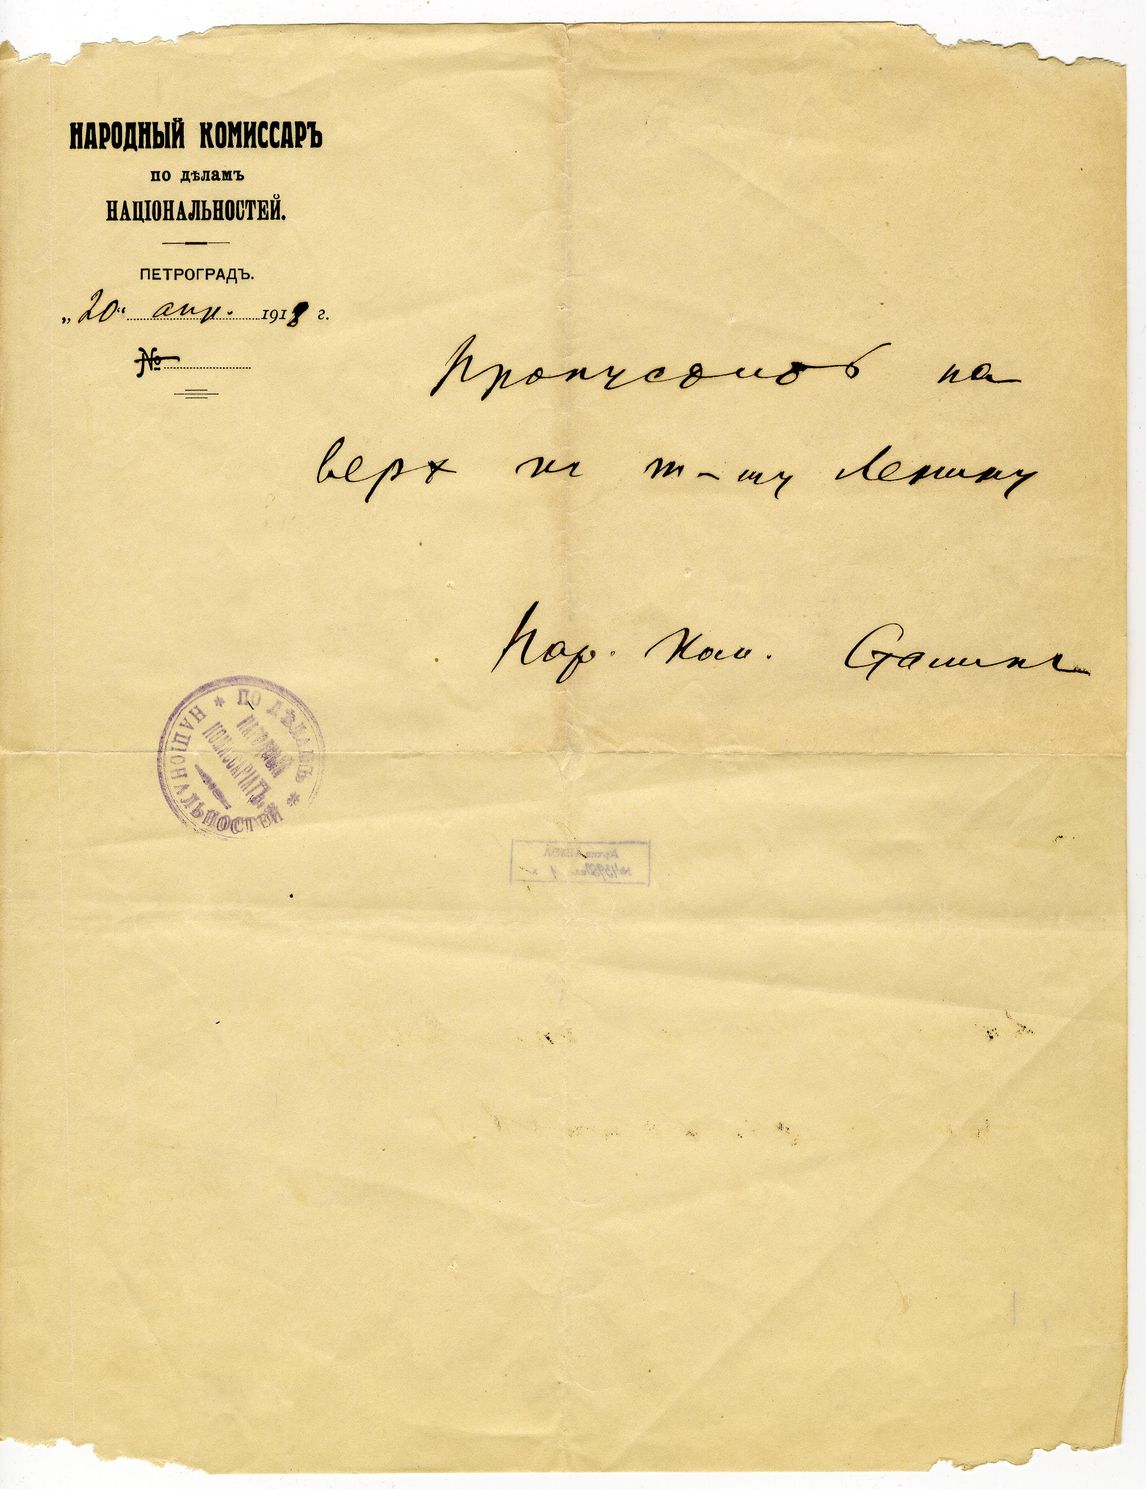 НАРОДНЫЙ КОМИССАРЪ
по дѣламъ
НАЦІОНАЛЬНОСТЕЙ.
ПЕТРОГРАДЪ.
„20“ апр. 1918 г.
№
Пропустить на
верх к т-щу Ленину
Нар. Ком. Сталин
ПО ДѢЛАМЪ * НАЦІОНАЛЬНОСТЕЙ *
НАРОДНЫЙ
КОМИССАРІАТЪ